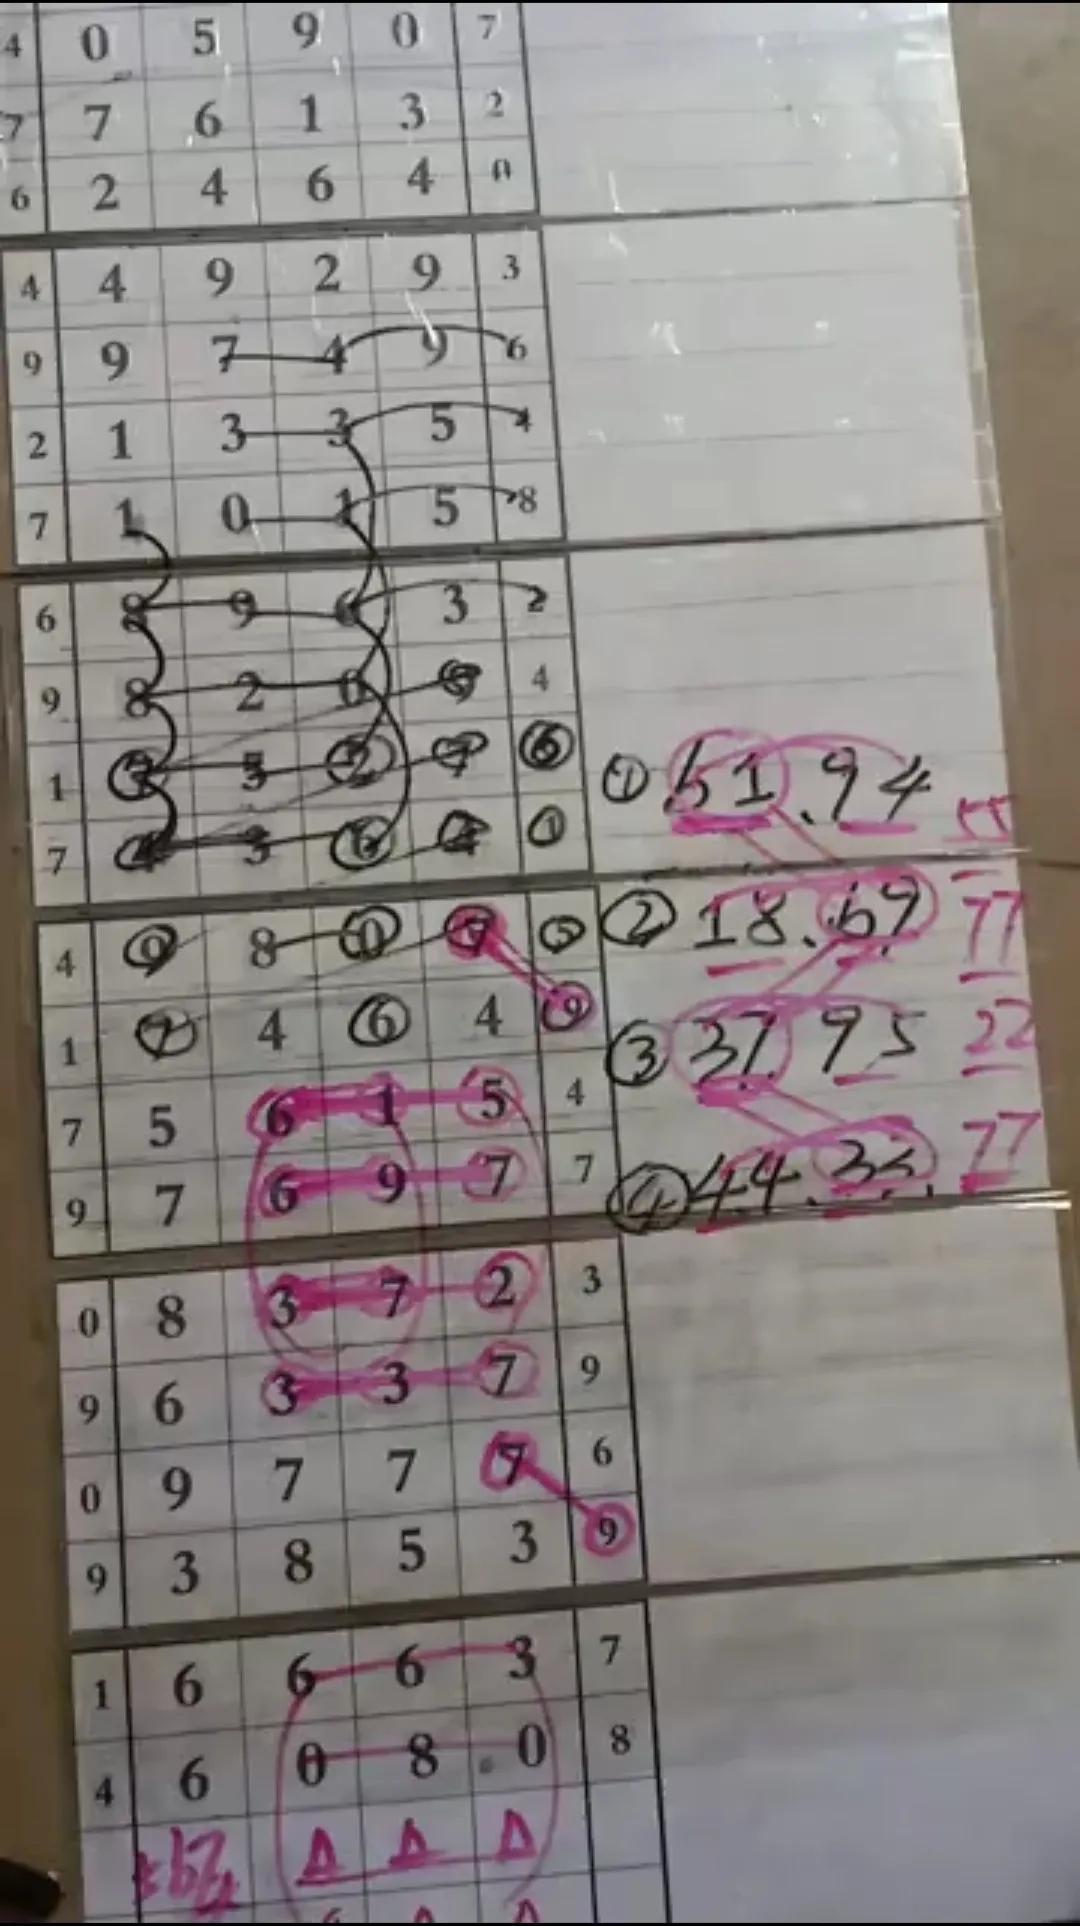 4 0 5 9 0 7
7 7 6 1 3 2
6 2 4 6 4 0
4 4 9 2 9 3
9 9 7 4 9 6
2 1 3 3 5 4
7 1 0 1 5 8
6 8 9 6 3 2
9 8 2 0 4
1 5 2 7 6 ① 51.94 55
7 4 3 6 1
4 9 8 0 5 ② 18.69 77
1 7 4 6 4 9 ③ 37.95 22
7 5 6 1 5 4
9 7 6 9 7 7 ④ 44.33 77
0 8 3 7 2 3
9 6 3 3 7 9
0 9 7 7 7 6
9 3 8 5 3 9
1 6 6 6 3 7
4 6 0 8 0 8